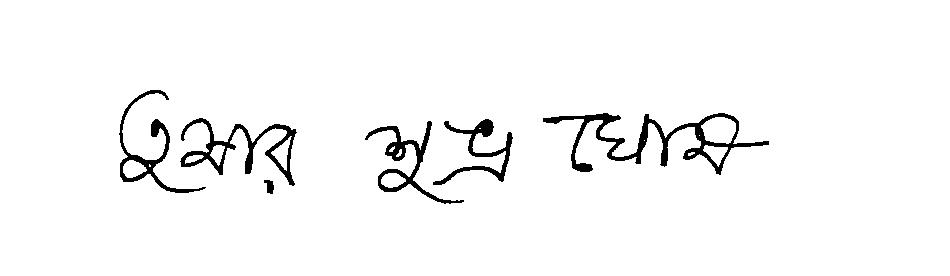 তুষার শুভ্র ঘোষ